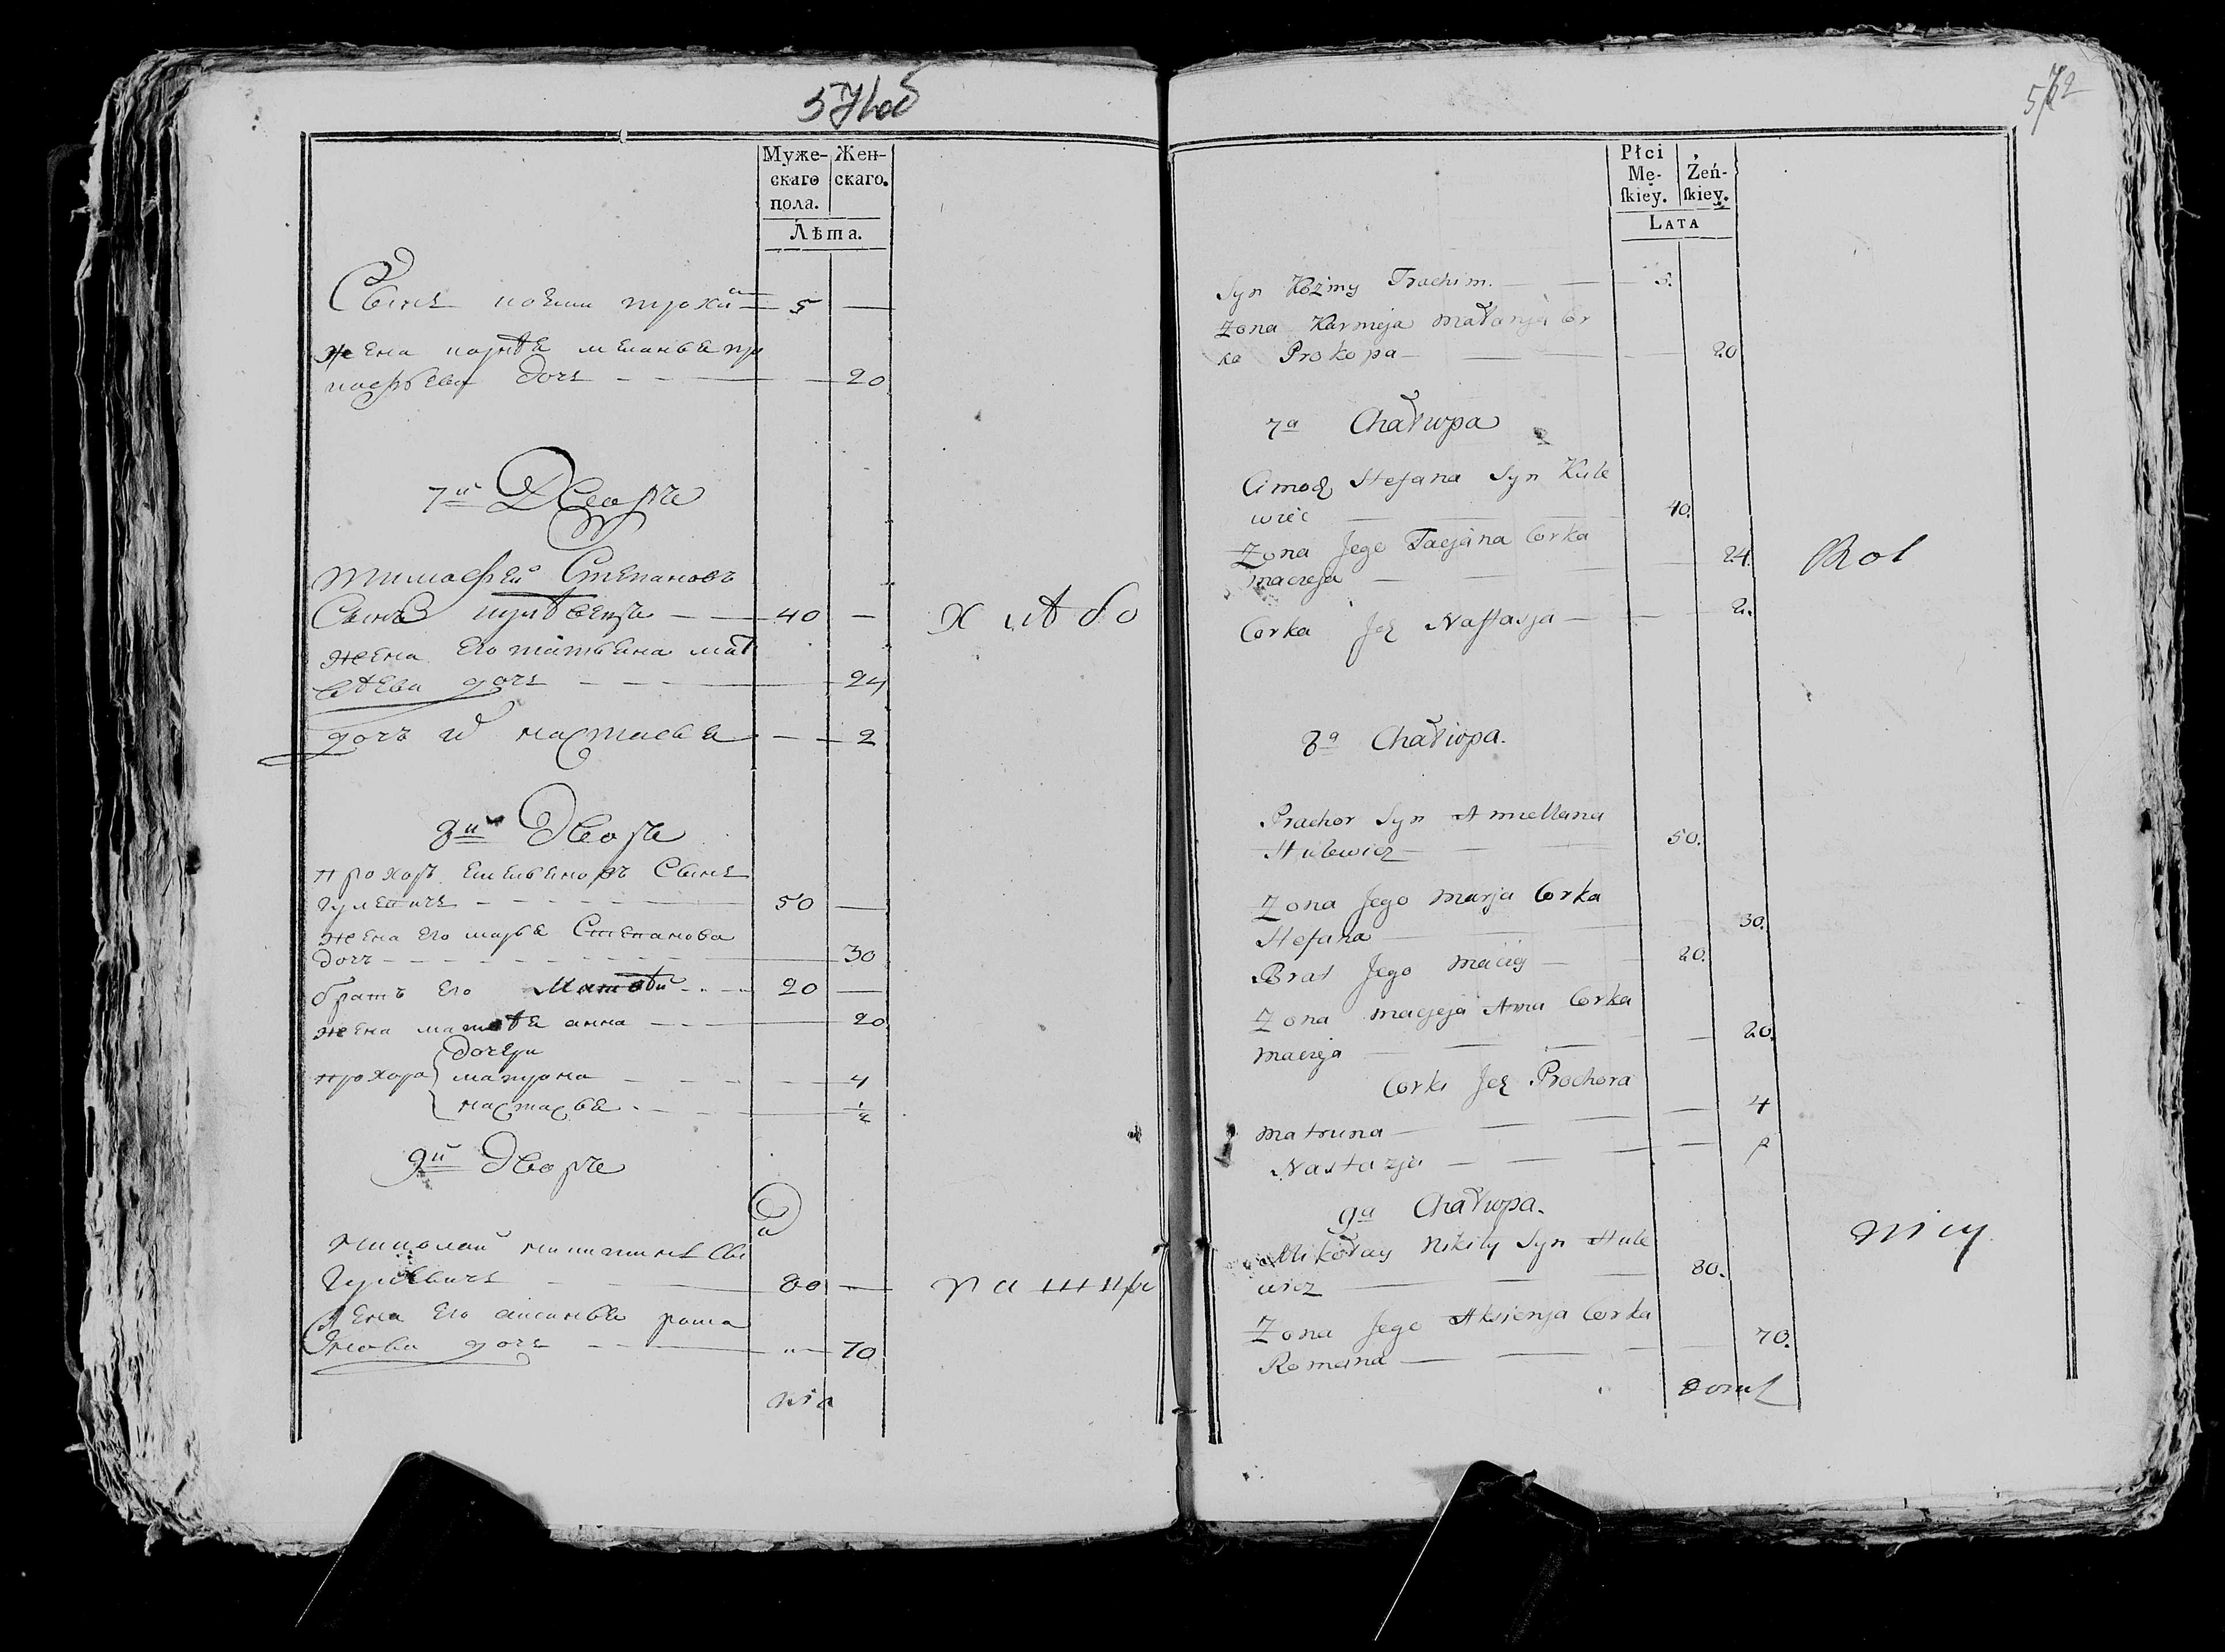 571об
Муже-
скаго
пола.
Жен-
скаго.
Лѣта.
Сынъ козми трохи 5
жена корнѣя меланья про
кофьева дочь 20
7й Дворъ
тимофей Степановъ
Сынъ 40
жена его татьяна мат
вѣева дочь 24
дочь настасья 2
хлѣбо
8й Дворъ
прохоръ емельяновъ Сынъ
гулевичъ 50
жена его марья Степанова
дочь 30
братъ его Матвѣй 20
жена матвѣя анна 20
дочери
прохора матрона 4
настасья
9й Дворъ
николай никитинъ Сы
гулевичъ 80
жена его аксинья рома
нова дочь 70
паши
572
Płci
Mę-
ſkiey.
Żeń-
ſkiey.
LATA
Syn Kozmy Trachim. 5.
Zona Karnieja Małanja Cor
ka Prokopa 20
7a Chałupa
Cimod Stefana Syn Kule
wiec 40.
Zona Jego Tacjana Corka
Macieja 24.
Corka Jeg Naſtasja 2.
Rol
8a Chałupa.
Prachor Syn Amiellana
Hulewicz 50.
Zona Jego Marja Corka
Stefana 30.
Brat Jego Maciej 20.
Zona Macjeja Anna Corka
Macieja 20.
Corki Jeg Prochora
Matruna 4
Nastazja
9a Chałupa.
Mikołay Nikity Syn Hule
wicz 80.
Zona Jego Aksienja Corka
Romana 70.
nicy